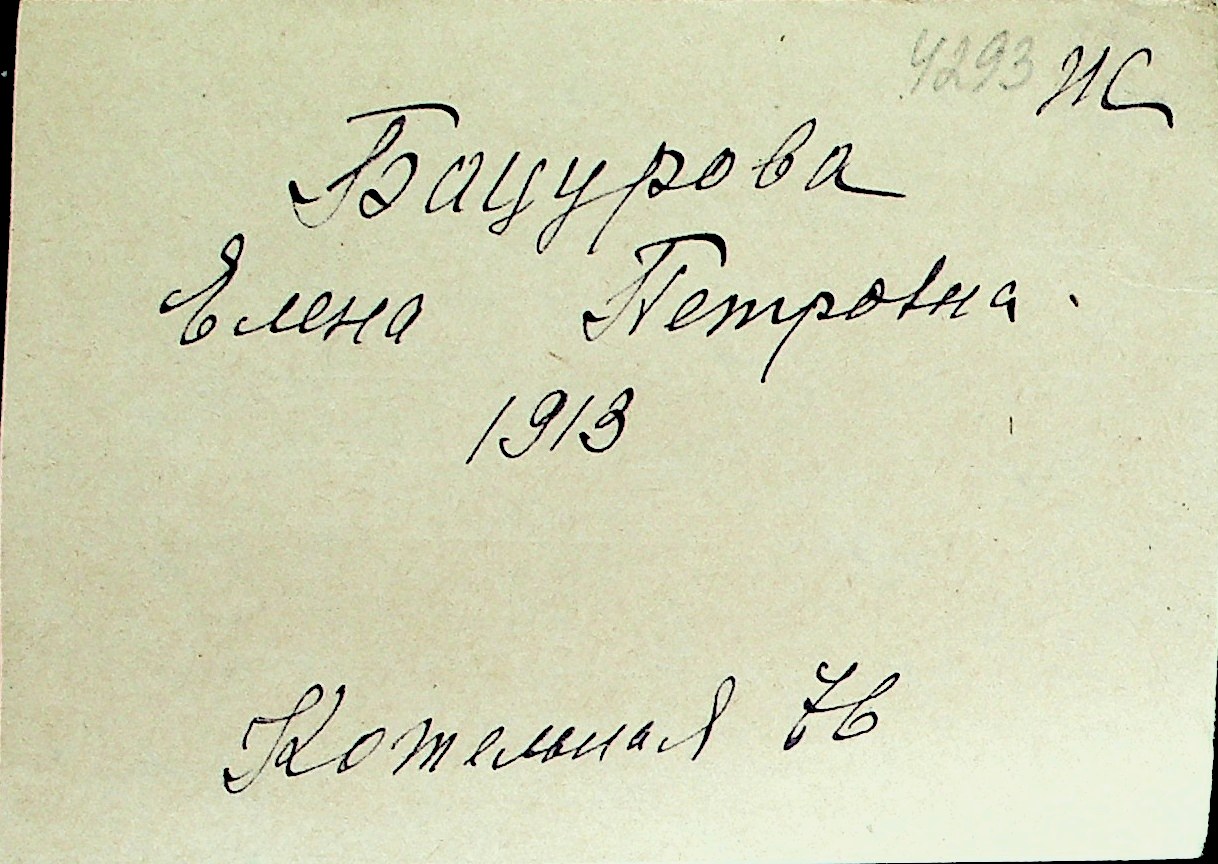 4293 ИС
Бацурова
Елена Петровна.
1913
Котельная 7в